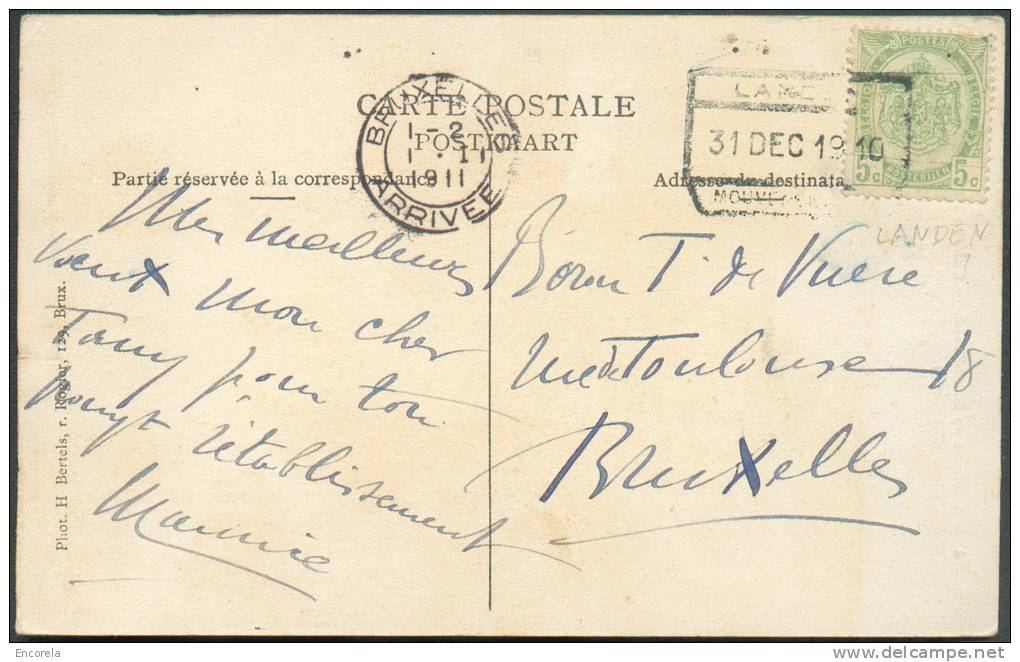 CARTE POSTALE
POSTKAART
Partie réservée à la correspondance
Adresse du destinata
BRUXELLES
1-2
1 · I
1911
ARRIVÉE
LANDEN
31 DEC 1910
MOUVEMEN
POSTES
BELGIQUE
BELGIE
5c POSTERIJEN 5c
LANDEN
Mes meilleurs
vœux mon cher
Tony pour ton
prompt rétablissement
Maurice
Baron T. de
rue de Toulouse 18
Bruxelles
Phot. H Bertels, r. Rogier, 129, Brux.
Encorela
delcampe.net